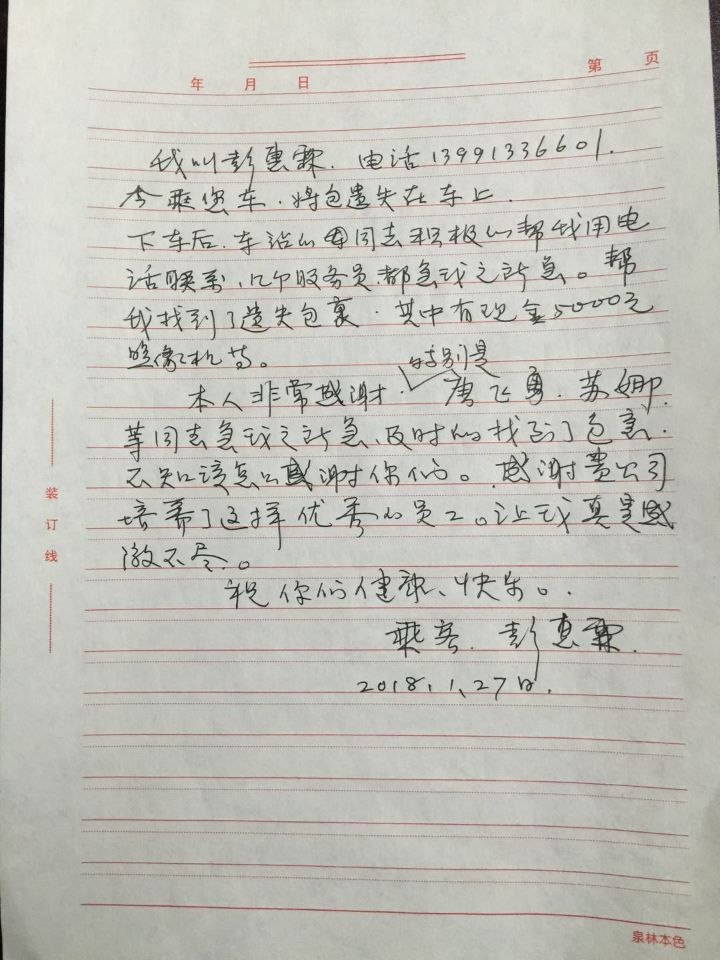 第 页
年 月 日
我叫彭惠霖. 电话13991336601.
今乘您车.将包遗失在车上.
下车后.车站的同志积极的帮我用电
话联系,几个服务员都急我之所急。帮
我找到了遗失包裹.其中有现金5000元
照像机等。
特别是
本人非常感谢.唐飞勇.苏娜.
等同志急我之所急、及时的找到了包裹.
不知该怎么感谢你们。感谢贵公司
培养了这样优秀的员工。让我真是感
激不尽。
祝你们健康、快乐。
乘客.彭惠霖.
2018.1.27日.
装订线
泉林本色